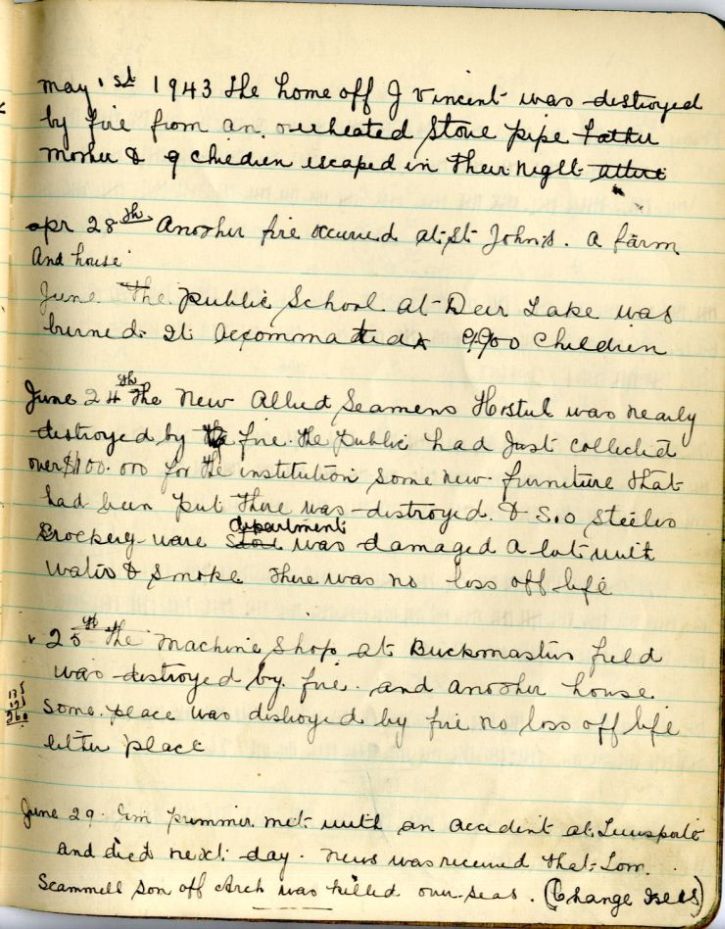 May 1st 1943 The home off J Vincent was destroyed
by fire from an overheated Stove pipe Father
Mother & 9 children escaped in their night attire
Apr 28th Another fire occured at St John's. A farm
And house
June The public School at Deer Lake was
burned. It accommated 900 children
June 24th The New Allied Seamens Hostul was nearly
destroyed by the fire. The public had just collected
over $100.000 for the institution some new furniture that
had been put there was destroyed. & S.O Steeles
Crockery ware Store department was damaged a lot with
water & smoke there was no loss off life
25th The Machine Shop at Buckmasters field
was destroyed by fire. and another house
some place was distroyed by fire no loss off life
either place
175
121
260
June 29. met with an accident at Lewisporte
and died next day. News was received that Tom
Scammell son off Arch was killed over-seas. (Change Isels)